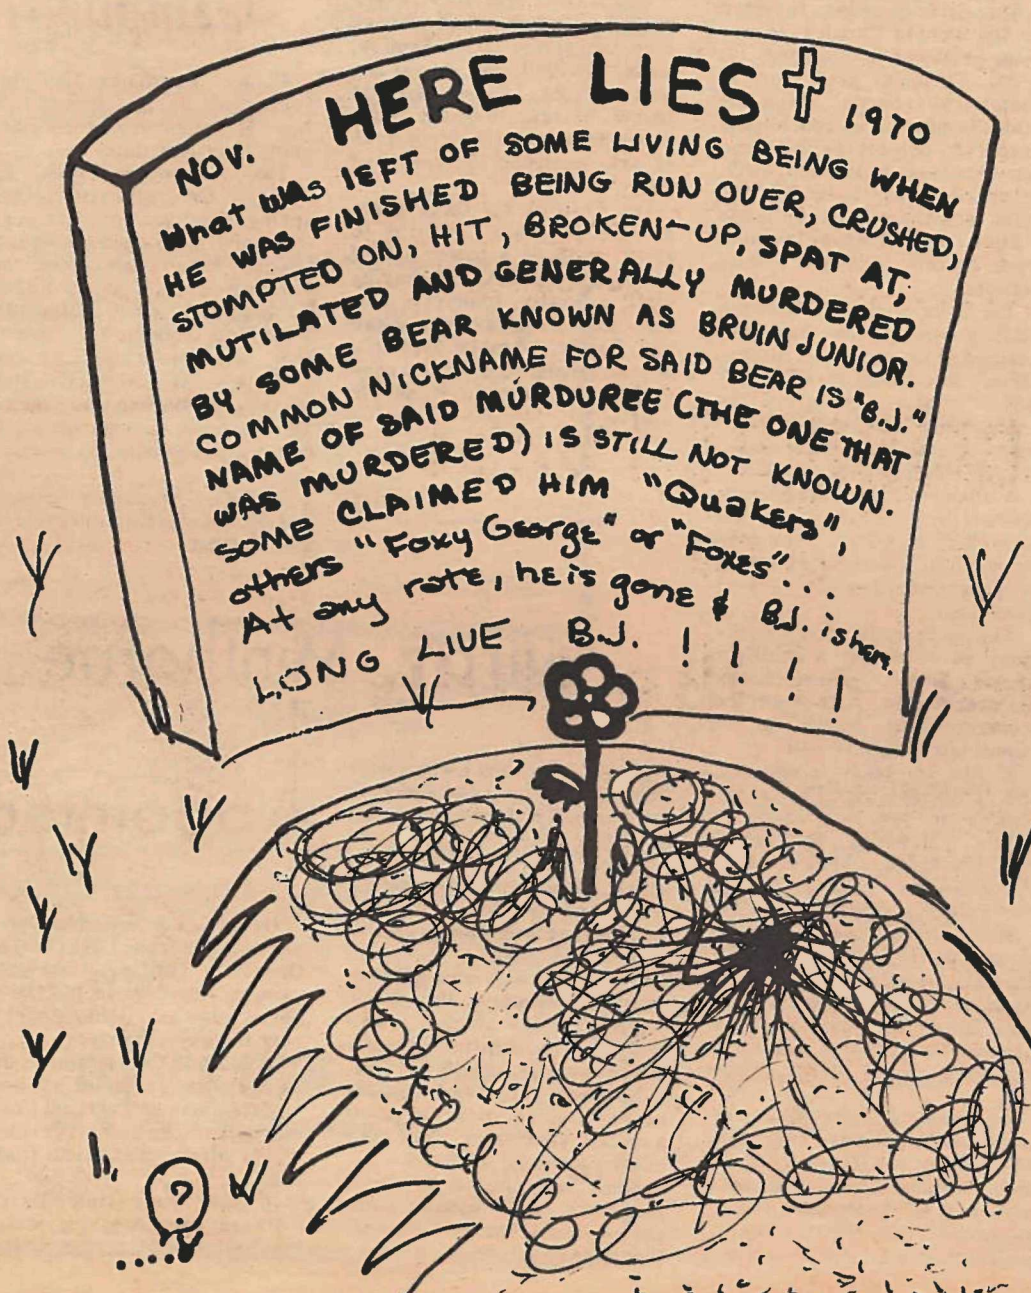 HERE LIES
NOV. 1970
What was lEFT OF SOME LIVING BEING WHEN
HE WAS FINISHED BEING RUN OVER, CRUSHED,
STOMPTED ON, HIT, BROKEN-UP, SPAT AT,
MUTILATED AND GENERALLY MURDERED
BY SOME BEAR KNOWN AS BRUIN JUNIOR.
COMMON NICKNAME FOR SAID BEAR IS "B.J."
NAME OF SAID MURDUREE (THE ONE THAT
WAS MURDERED) IS STILL NOT KNOWN.
SOME CLAIMED HIM "Quakers",
others "Foxy George" or "Foxes"...
At any rate, he is gone & B.J. is here.
LONG LIVE B.J. ! ! ! !
?